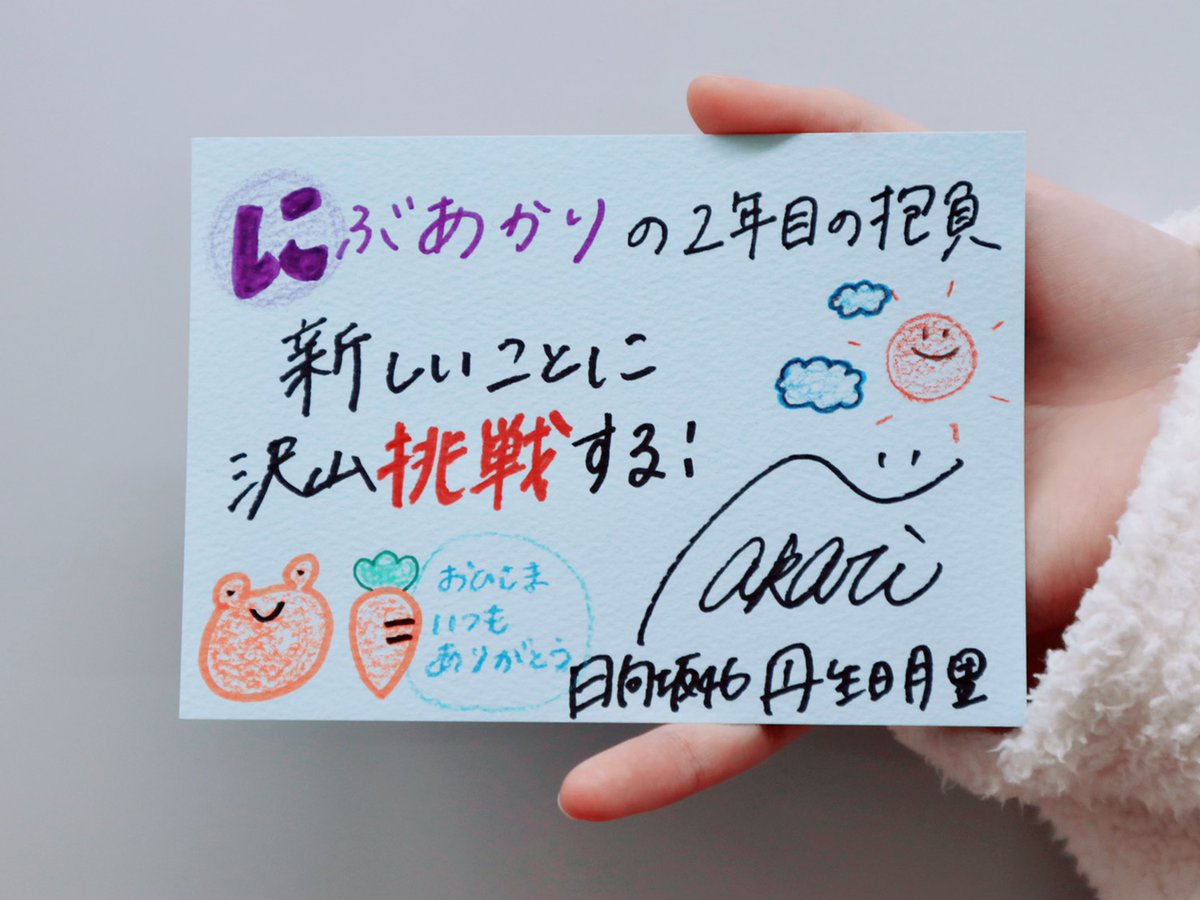 にぶあかりの2年目の抱負
新しいことに
沢山挑戦する!
おひさま
いつも
ありがとう
akari
日向坂46 丹生明里